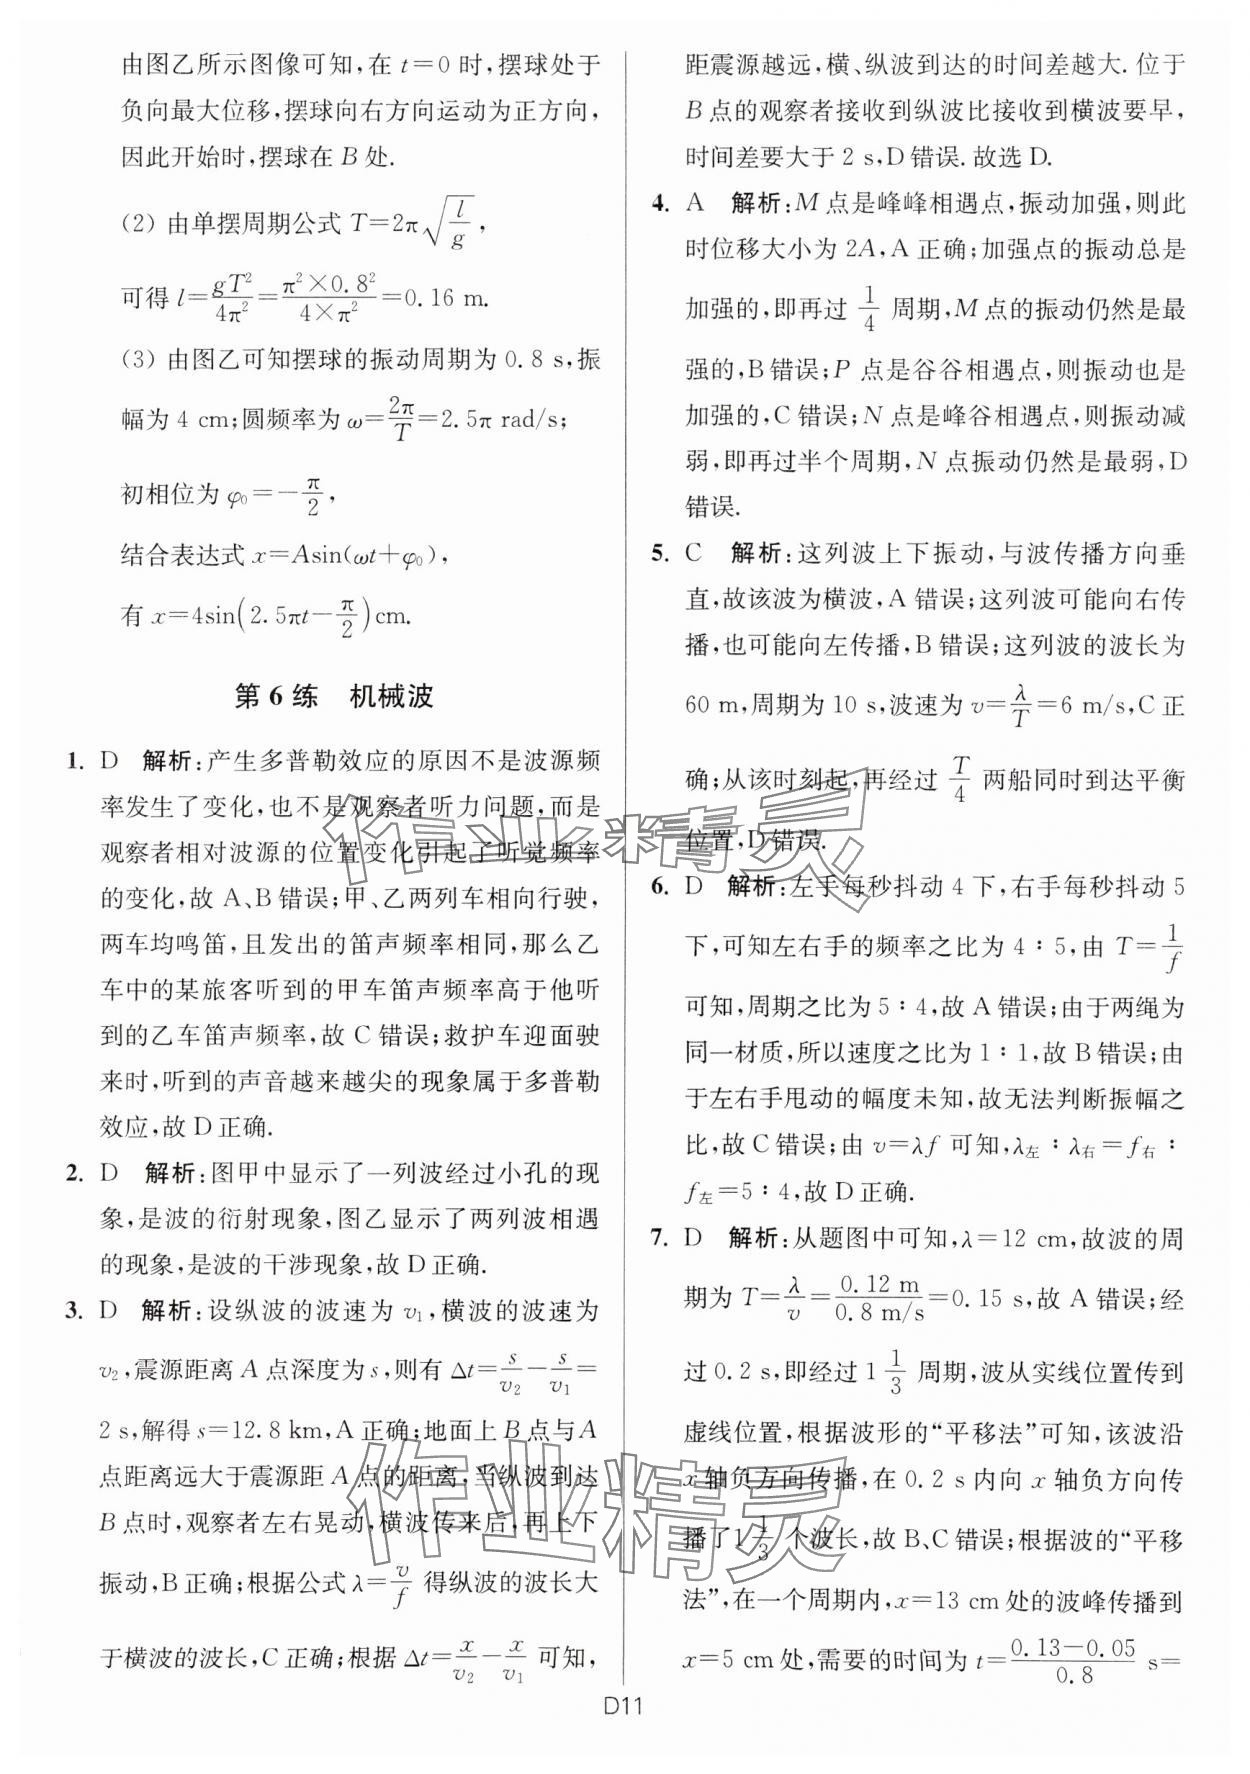 由图乙所示图像可知,在 t=0 时,摆球处于
负向最大位移,摆球向右方向运动为正方向,
因此开始时,摆球在 B 处.
(2) 由单摆周期公式 T=2π√(l/g),
可得 l=gT²/4π²=π²×0.8²/4×π²=0.16 m.
(3) 由图乙可知摆球的振动周期为 0.8 s,振
幅为 4 cm;圆频率为 ω=2π/T=2.5π rad/s;
初相位为 φ₀=-π/2,
结合表达式 x=Asin(ωt+φ₀),
有 x=4sin(2.5πt-π/2)cm.
第 6 练 机械波
1. D 解析:产生多普勒效应的原因不是波源频
率发生了变化,也不是观察者听力问题,而是
观察者相对波源的位置变化引起了听觉频率
的变化,故 A、B 错误;甲、乙两列车相向行驶,
两车均鸣笛,且发出的笛声频率相同,那么乙
车中的某旅客听到的甲车笛声频率高于他听
到的乙车笛声频率,故 C 错误;救护车迎面驶
来时,听到的声音越来越尖的现象属于多普勒
效应,故 D 正确.
2. D 解析:图甲中显示了一列波经过小孔的现
象,是波的衍射现象,图乙显示了两列波相遇
的现象,是波的干涉现象,故 D 正确.
3. D 解析:设纵波的波速为 v₁,横波的波速为
v₂,震源距离 A 点深度为 s,则有 Δt=s/v₂-s/v₁=
2 s,解得 s=12.8 km,A 正确;地面上 B 点与 A
点距离远大于震源距 A 点的距离,当纵波到达
B 点时,观察者左右晃动,横波传来后,再上下
振动,B 正确;根据公式 λ=v/f 得纵波的波长大
于横波的波长,C 正确;根据 Δt=x/v₂-x/v₁ 可知,
距震源越远,横、纵波到达的时间差越大. 位于
B 点的观察者接收到纵波比接收到横波要早,
时间差要大于 2 s,D 错误. 故选 D.
4. A 解析:M 点是峰峰相遇点,振动加强,则此
时位移大小为 2A,A 正确;加强点的振动总是
加强的,即再过 1/4 周期,M 点的振动仍然是最
强的,B 错误;P 点是谷谷相遇点,则振动也是
加强的,C 错误;N 点是峰谷相遇点,则振动减
弱,即再过半个周期,N 点振动仍然是最弱,D
错误.
5. C 解析:这列波上下振动,与波传播方向垂
直,故该波为横波,A 错误;这列波可能向右传
播,也可能向左传播,B 错误;这列波的波长为
60 m,周期为 10 s,波速为 v=λ/T=6 m/s,C 正
确;从该时刻起,再经过 T/4 两船同时到达平衡
位置,D 错误.
6. D 解析:左手每秒抖动 4 下,右手每秒抖动 5
下,可知左右手的频率之比为 4∶5,由 T=1/f
可知,周期之比为 5∶4,故 A 错误;由于两绳为
同一材质,所以速度之比为 1∶1,故 B 错误;由
于左右手甩动的幅度未知,故无法判断振幅之
比,故 C 错误;由 v=λf 可知,λ左∶λ右=f右∶
f左=5∶4,故 D 正确.
7. D 解析:从题图中可知,λ=12 cm,故波的周
期为 T=λ/v=0.12 m/0.8 m/s=0.15 s,故 A 错误;经
过 0.2 s,即经过 1 1/3 周期,波从实线位置传到
虚线位置,根据波形的“平移法”可知,该波沿
x 轴负方向传播,在 0.2 s 内向 x 轴负方向传
播了 1 1/3 个波长,故 B、C 错误;根据波的“平移
法”,在一个周期内,x=13 cm 处的波峰传播到
x=5 cm 处,需要的时间为 t=0.13-0.05/0.8 s=
D11
作业精灵
作业精灵